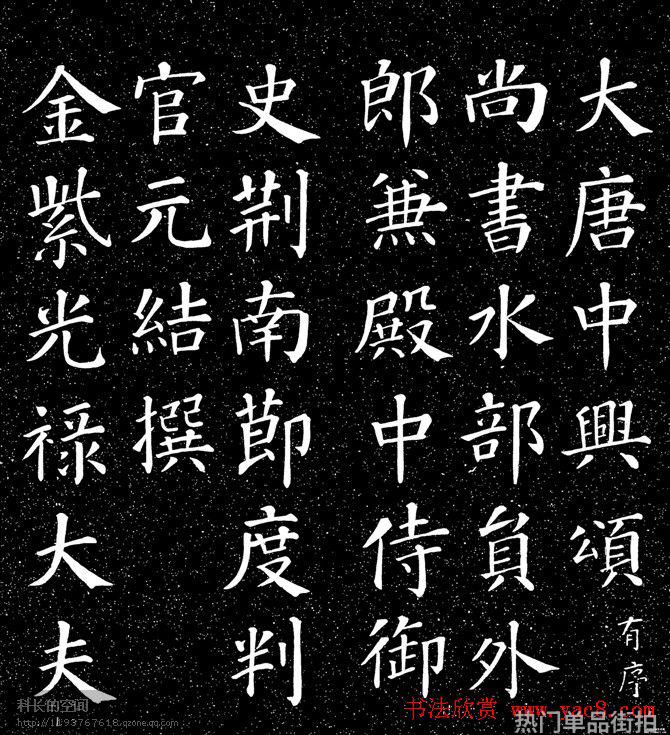 大唐中興頌有序
尚書水部貟外
郎兼殿中侍御
史荆南莭度判
官元結撰
金紫光禄大夫
科长的空间
http://1193767618.qzone.qq.com
书法欣赏 www.yac8.com
热门单品街拍